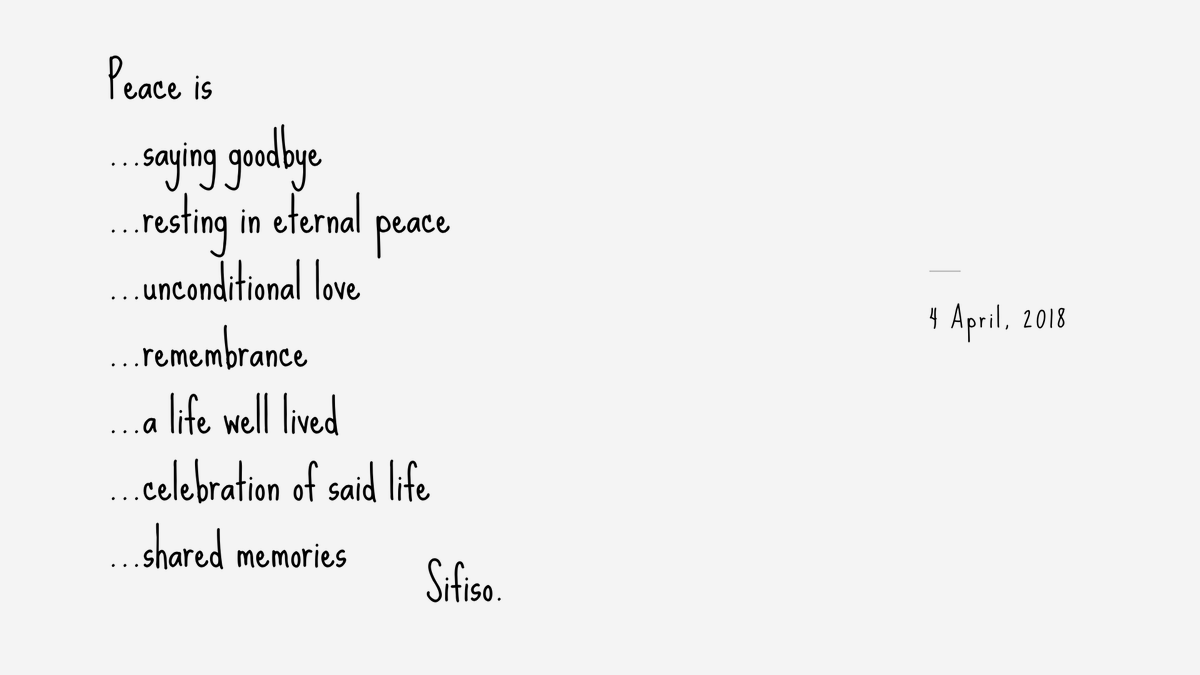 Peace is
...saying goodbye
...resting in eternal peace
...unconditional love
...remembrance
...a life well lived
...celebration of said life
...shared memories
Sifiso.
4 April, 2018